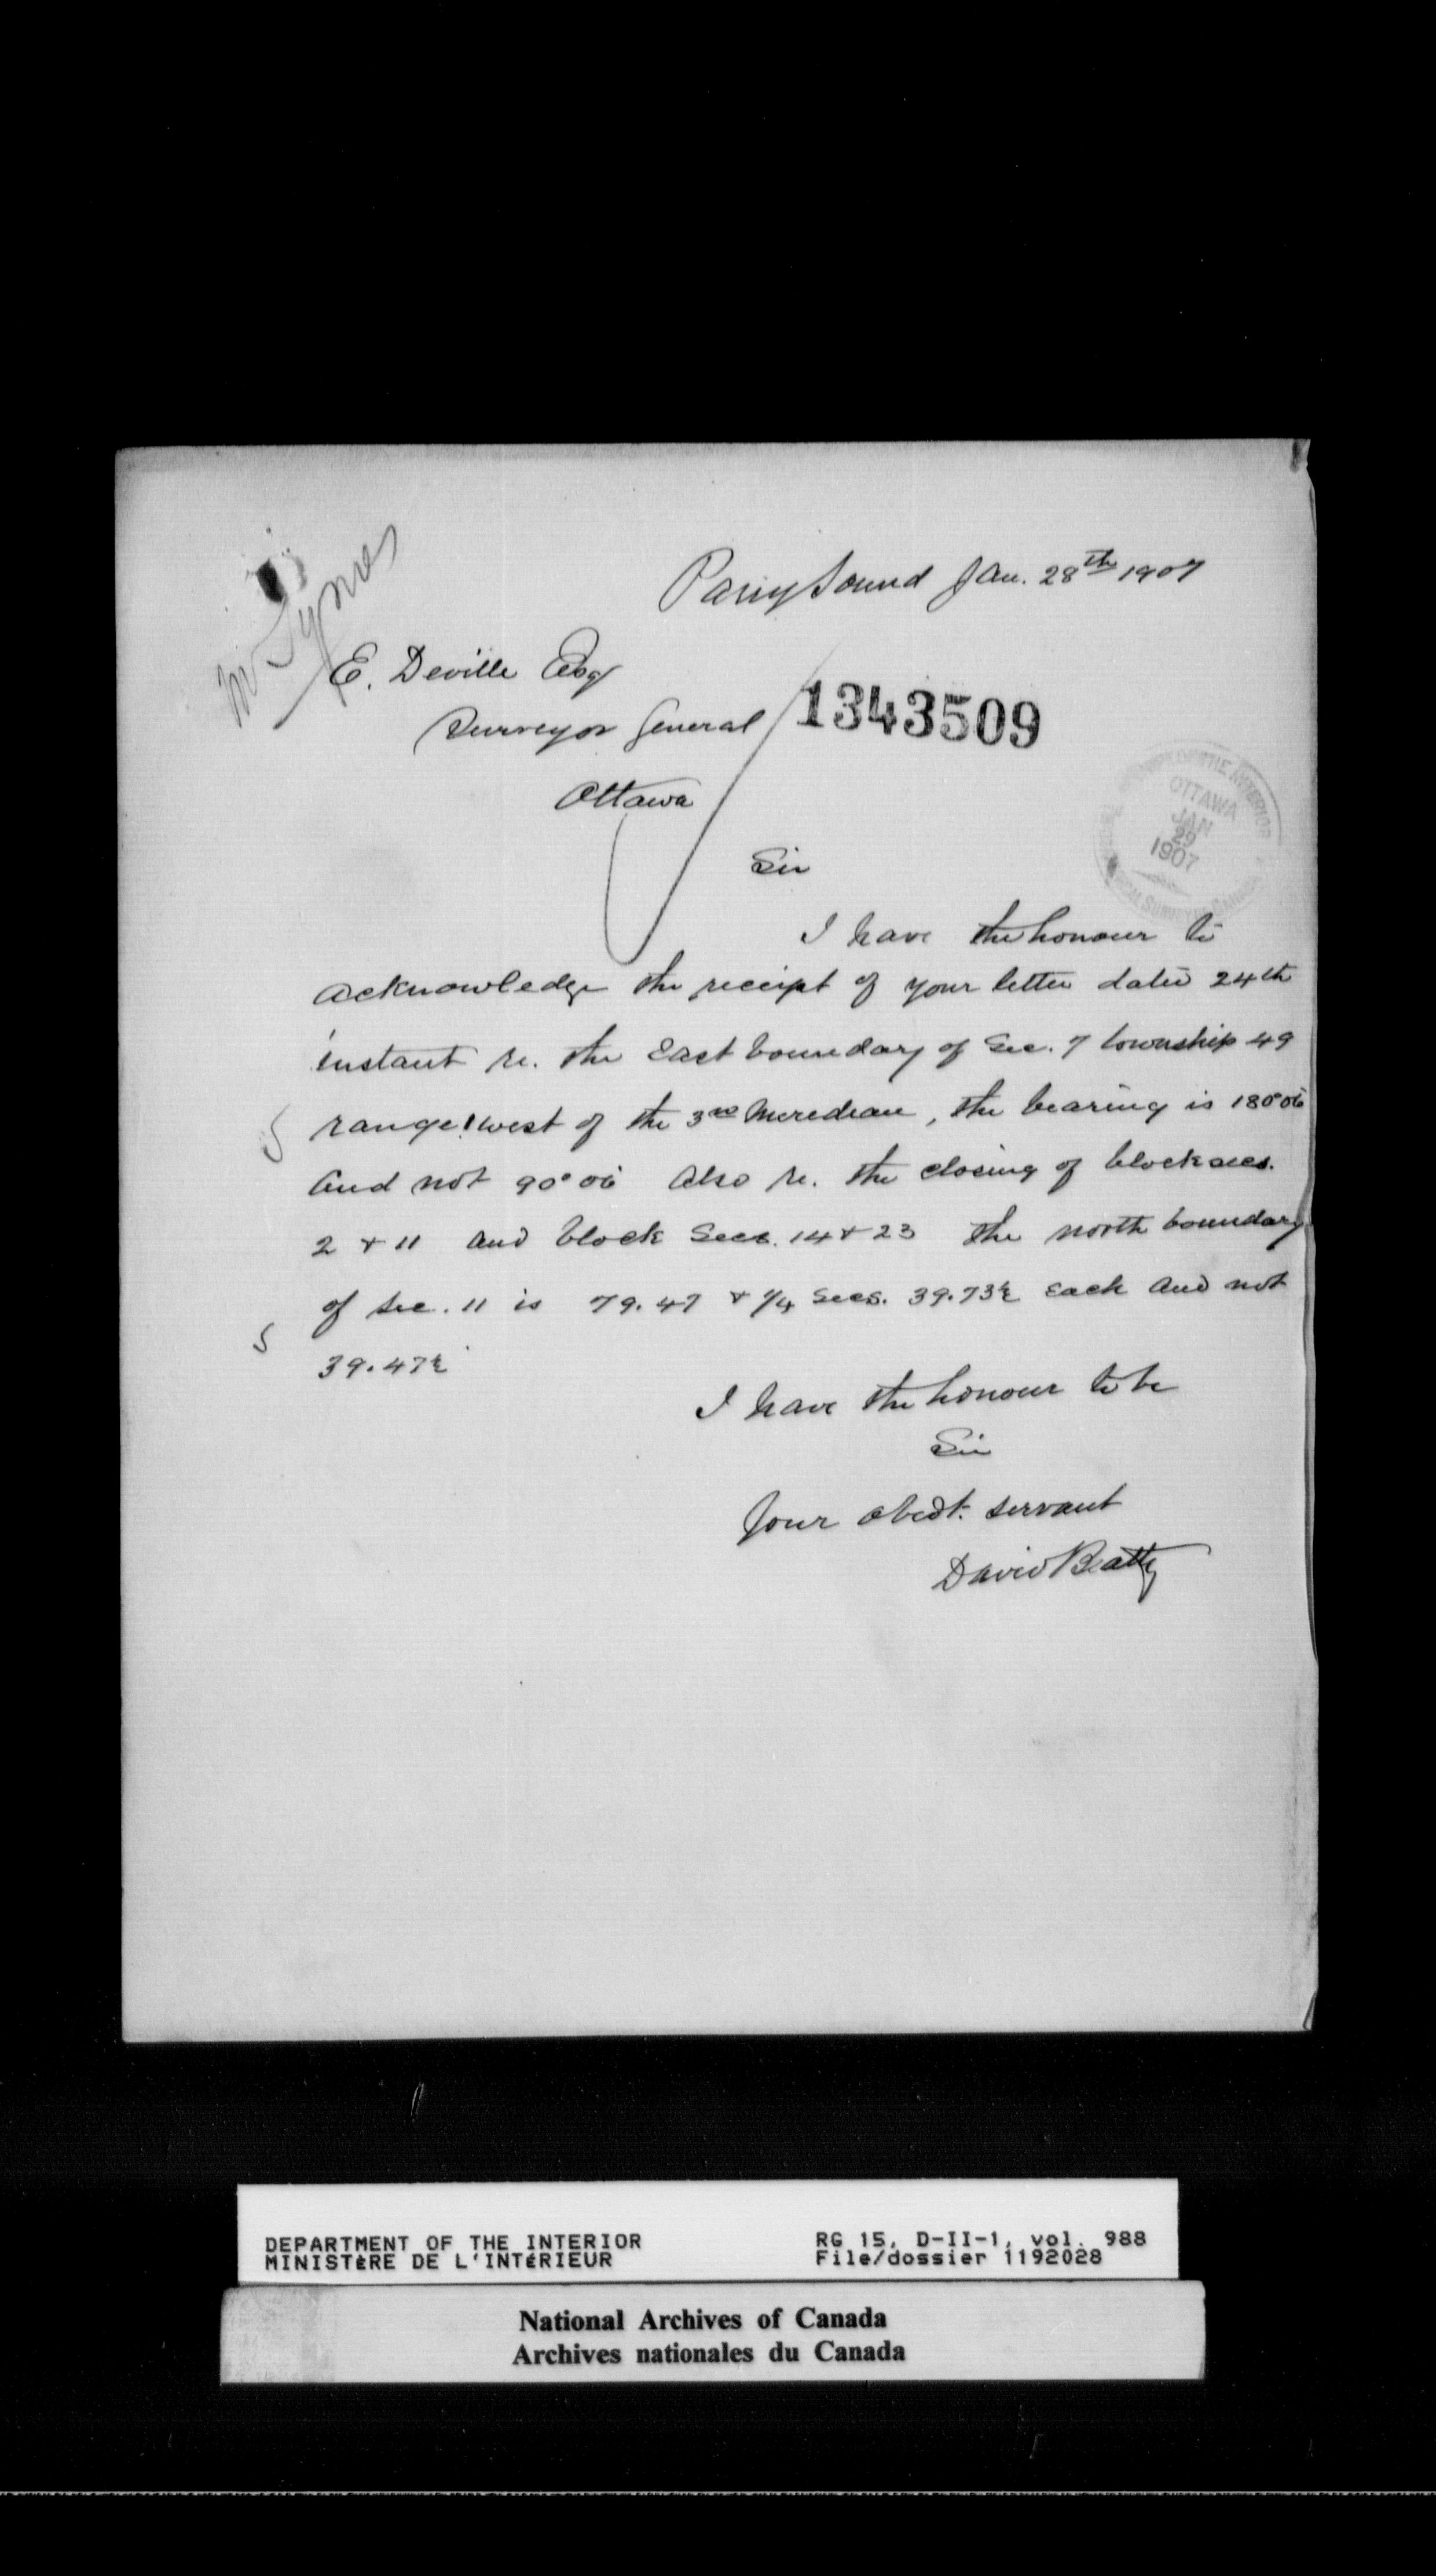 Mr Symes
Parry Sound Jan. 28th 1907
E. Deville Esq
Surveyor General
1343509
Ottawa
OTTAWA
JAN
29
1907
Sir
I have the honour to
acknowledge the receipt of your letter dated 24th
instant re. the East boundary of Sec. 7 township 49
range 1 west of the 3rd Meredean, the bearing is 180°06'
and not 90°06' Also re. the closing of block secs.
2 & 11 and block Secs. 14 & 23 the north boundary
of sec. 11 is 79.47 & 1/4 Secs. 39.73½ each and not
39.47½
I have the honour to be
Sir
Your obedt. servant
David Beatty
DEPARTMENT OF THE INTERIOR
MINISTÈRE DE L'INTÉRIEUR
RG 15, D-II-1, vol. 988
File/dossier 1192028
National Archives of Canada
Archives nationales du Canada